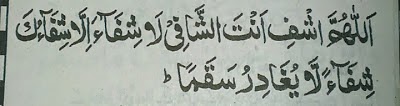 اَللّٰهُمَّ اشْفِ اَنْتَ الشَّافِیْ لَا شِفَآءَ اِلَّا شِفَآءُكَ
شِفَآءً لَّا یُغَادِرُ سَقَمًا ؕ